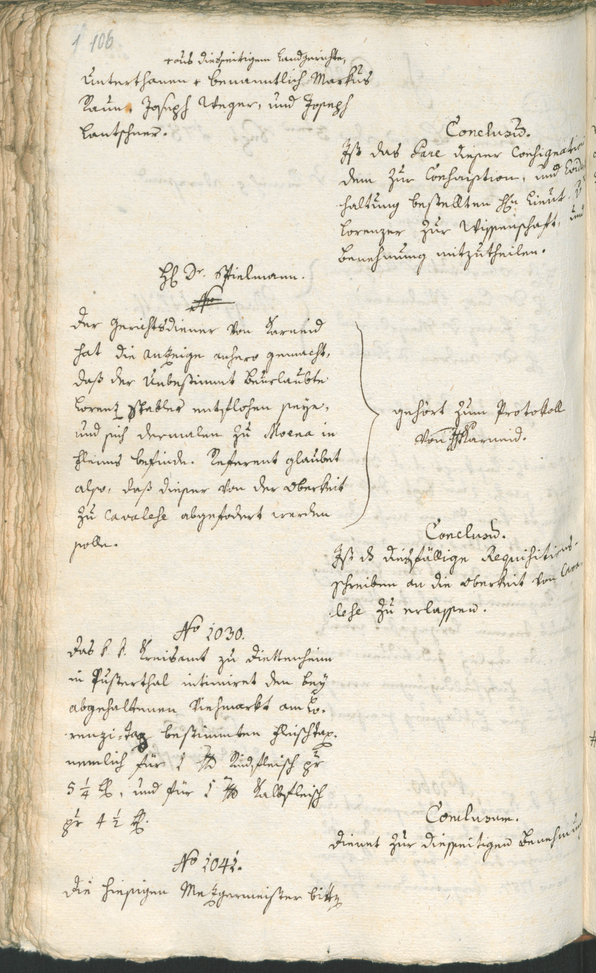 106
+ aus diesseitigem Landgerichte,
Unterthanen + benanntlich Markus
Raun, Joseph Weger, und Joseph
Lantschner.
Conclusum.
Ist das Pare dieser Consignation
dem zur Conscription, und
haltung bestellten Hn Lieut.
Lorenzer zur Wissenschaft, und
Benehmung mitzutheilen.
H. Dr. Spielmann.
No
Der Gerichtsdiener von Karneid
hat die Anzeige anhero gemacht,
daß der Unbestimmt Beurlaubte
Lorenz Stabler entflohen seye,
und sich dermalen zu Moena in
Fleims befinde. Referent glaubet
also, daß dieser von der Oberkeit
zu Cavalese abgefodert werden
solle.
gehört zum Protokoll
von Karneid.
Conclusum.
Ist das diesfällige Requisitions-
schreiben an die Oberkeit von Cava-
lese zu erlassen.
No 1030.
Das k. k. Kreisamt zu Diettenheim
in Pusterthal intimiret den bey
abgehaltenen Viehmarkt am Lo-
renzi-tag bestimmten Fleischtax.
nemlich für 1 ℔ Rindfleisch pr
5 1/4 kr, und für 1 ℔ Kalbfleisch
pr 4 1/2 kr.
Conclusum.
Dienet zur diesseitigen Benehmung
No 1041.
Die hiesigen Metzgermeister bitten